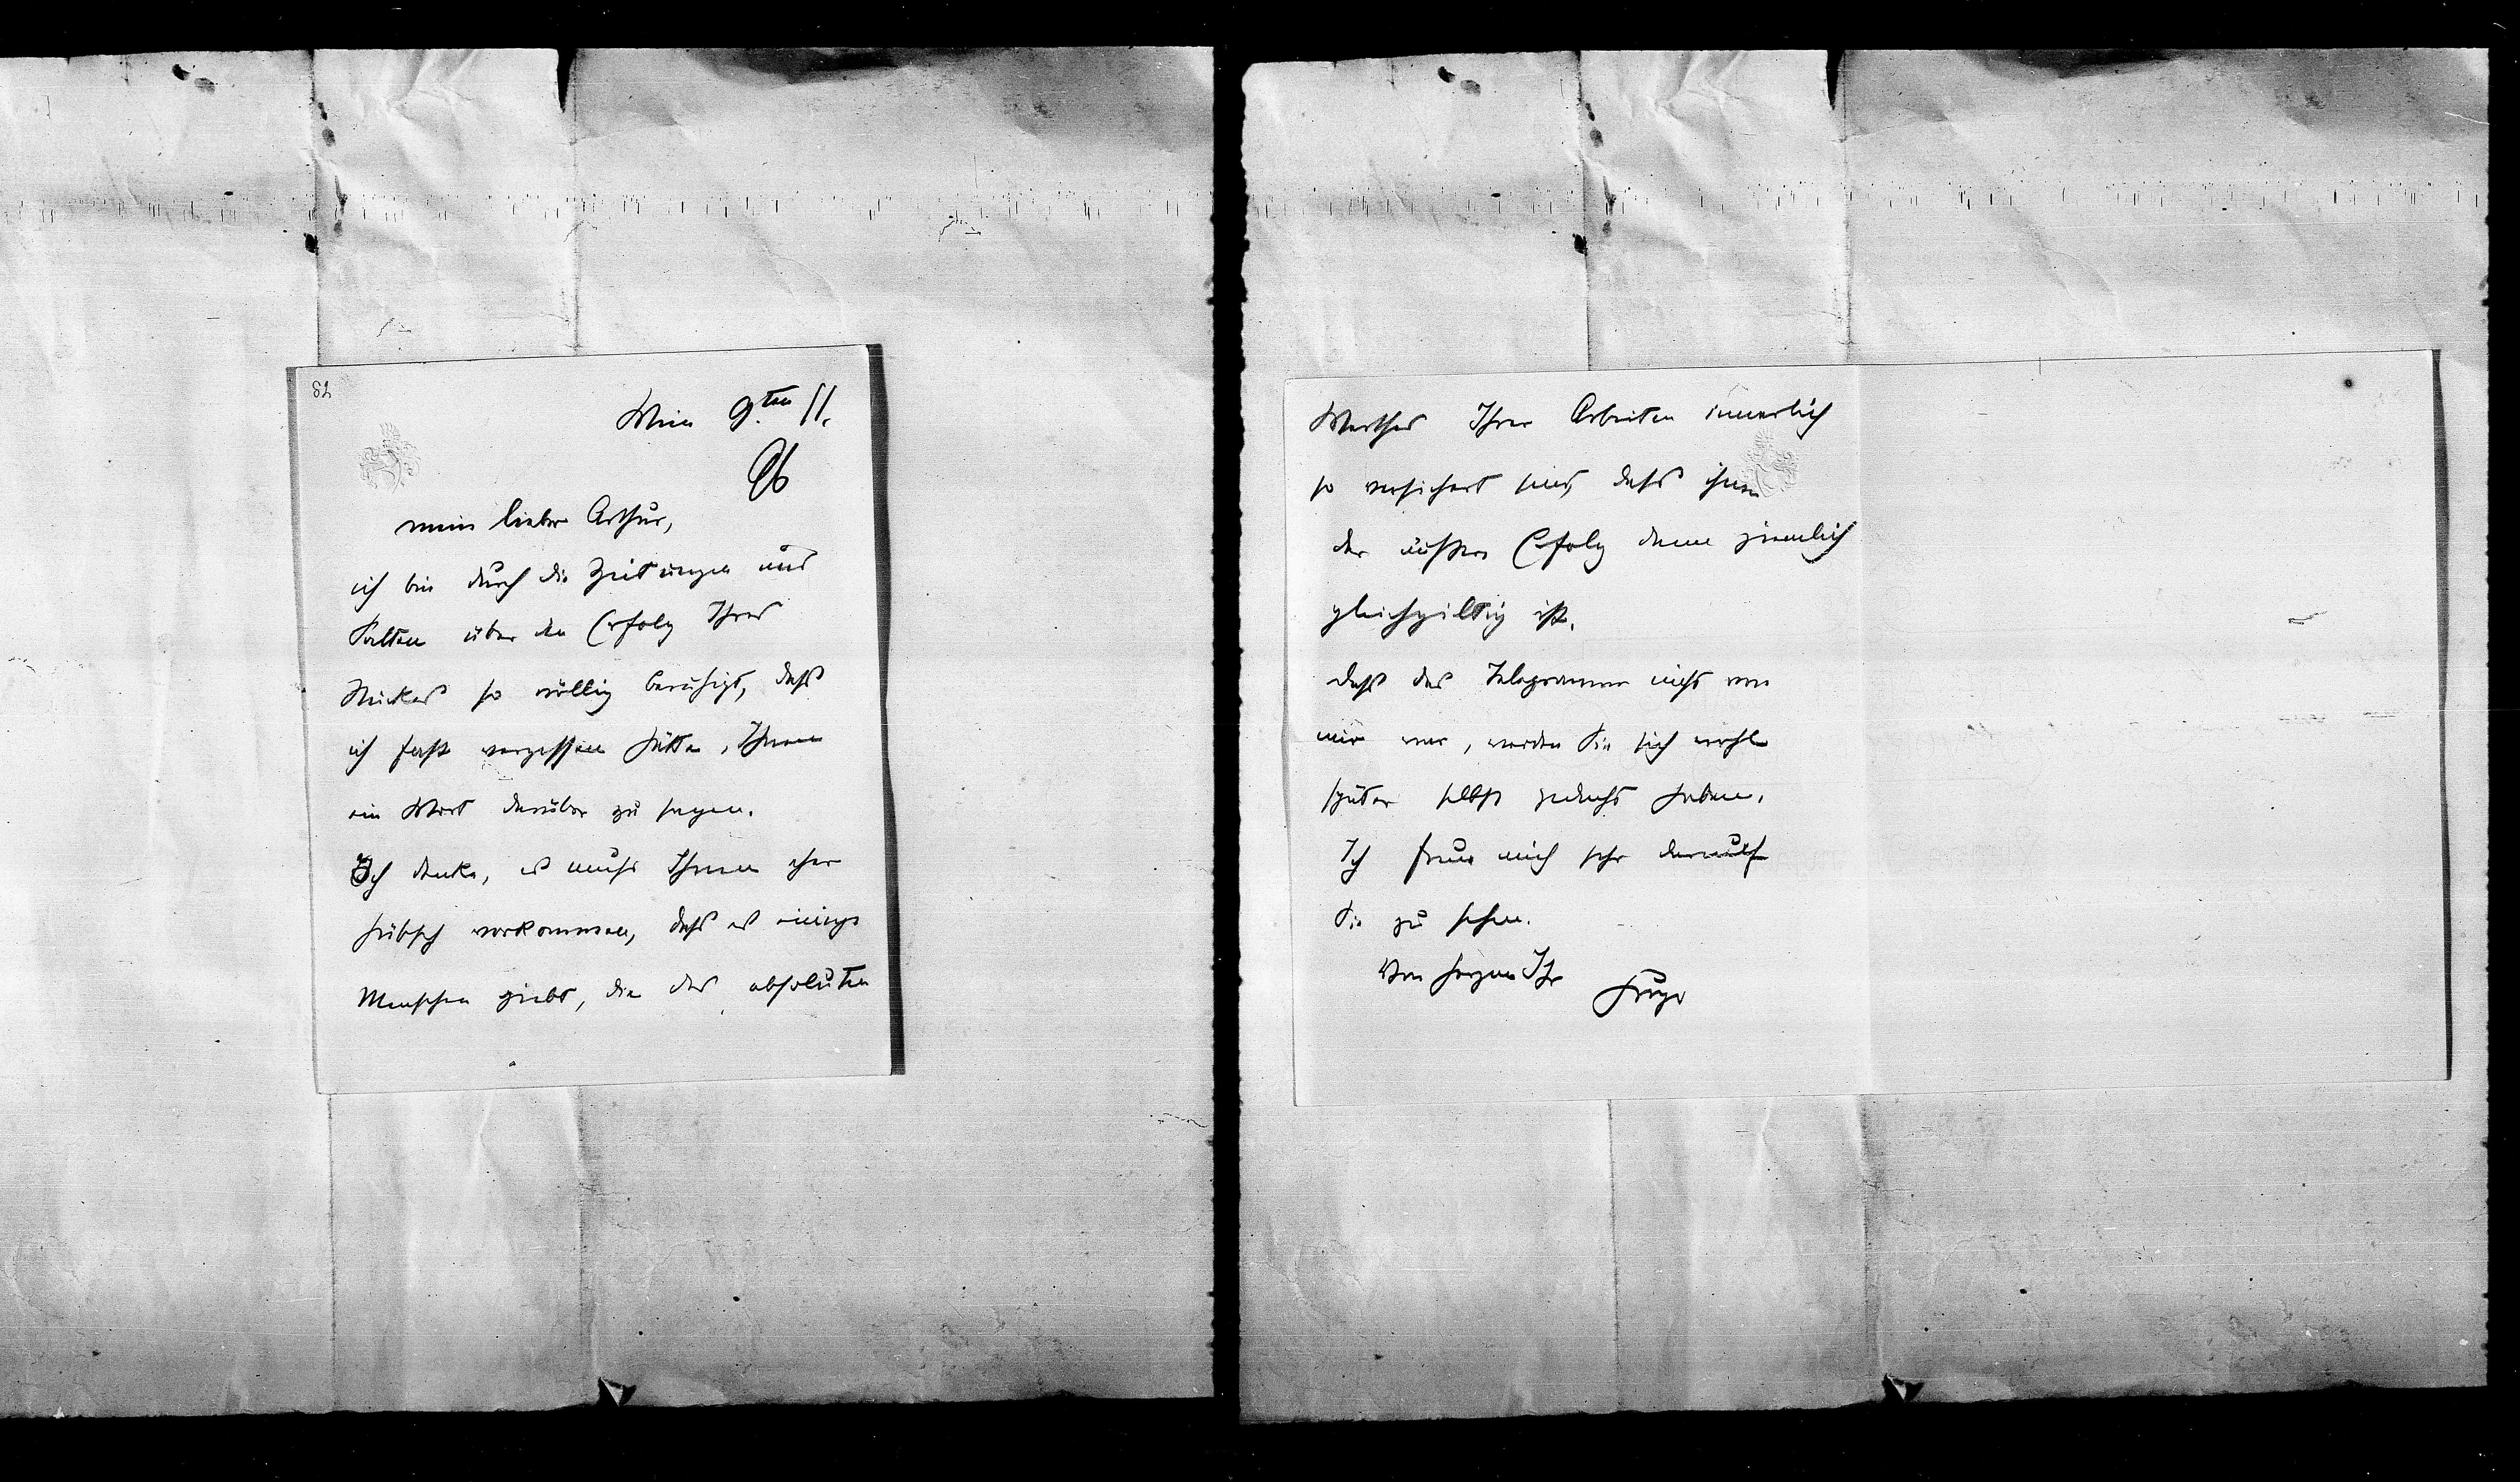 82
Wien 9.ten 11.
96
mein lieber Arthur,
ich bin durch die Zeitungen und
Salten über den Erfolg Ihres
Stückes so völlig beruhigt, dass
ich fast vergessen hätte, Ihnen
ein Wort darüber zu sagen.
Ich denke, es muss Ihnen eher
hübsch vorkommen, dass es einige
Menschen giebt, die des absoluten
Werthes Ihrer Arbeiten innerlich
so versichert sind, dass ihnen
der äußere Erfolg dann ziemlich
gleichgiltig ist.
Dass das Telegramm nicht von
mir war, werden Sie sich wohl
später selbst gedacht haben.
Ich freue mich sehr darauf
Sie zu sehen.
Von Herzen Ihr
Hugo